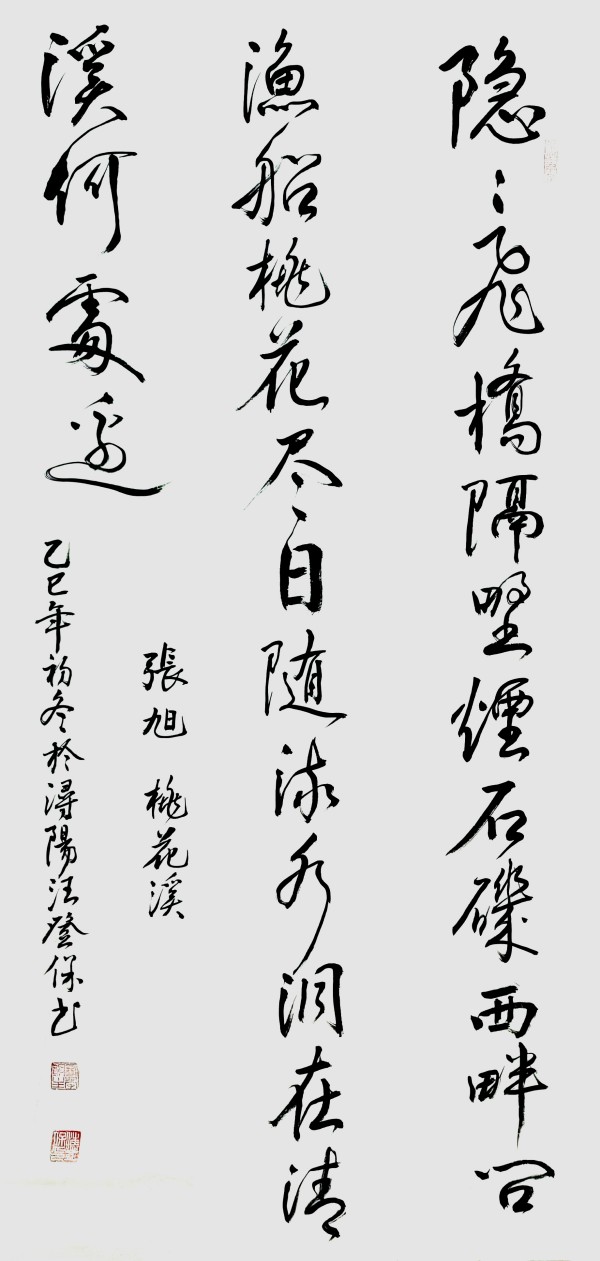 隐〻飛橋隔埜煙石磯西畔问
漁船桃花尽日随流水洞在清
溪何處邊
張旭 桃花溪
乙巳年初冬於潯陽汪登保书